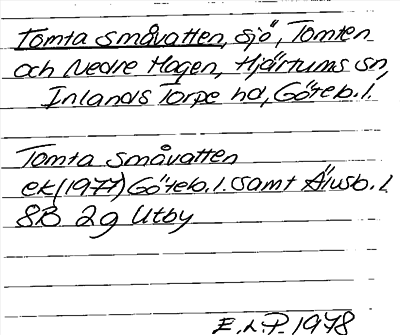 Tomta småvatten, sjö, Tomten
och Nedre Hagen, Hjärtums sn,
Inlands Torpe hd, Göteb. l.
Tomta småvatten
ek (1977) Göteb. l. samt Älvsb. l.
8B 2g Utby
E.L.P. 1978